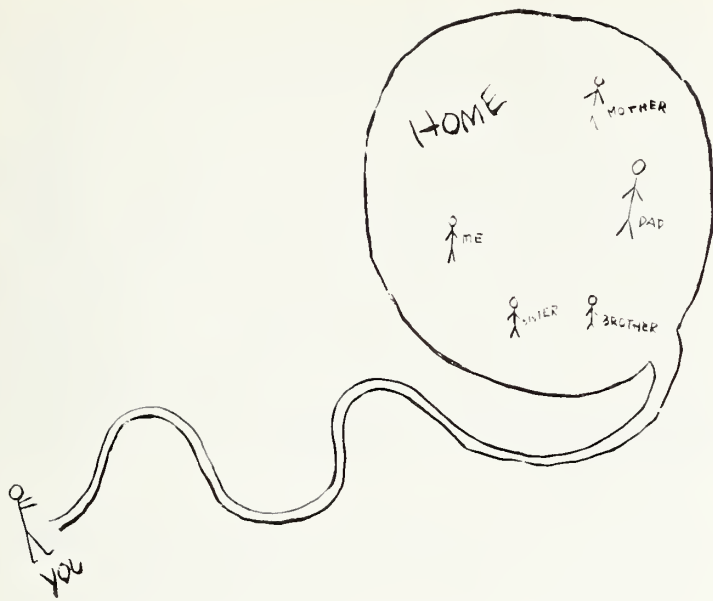 HOME
MOTHER
DAD
ME
SISTER
BROTHER
YOU